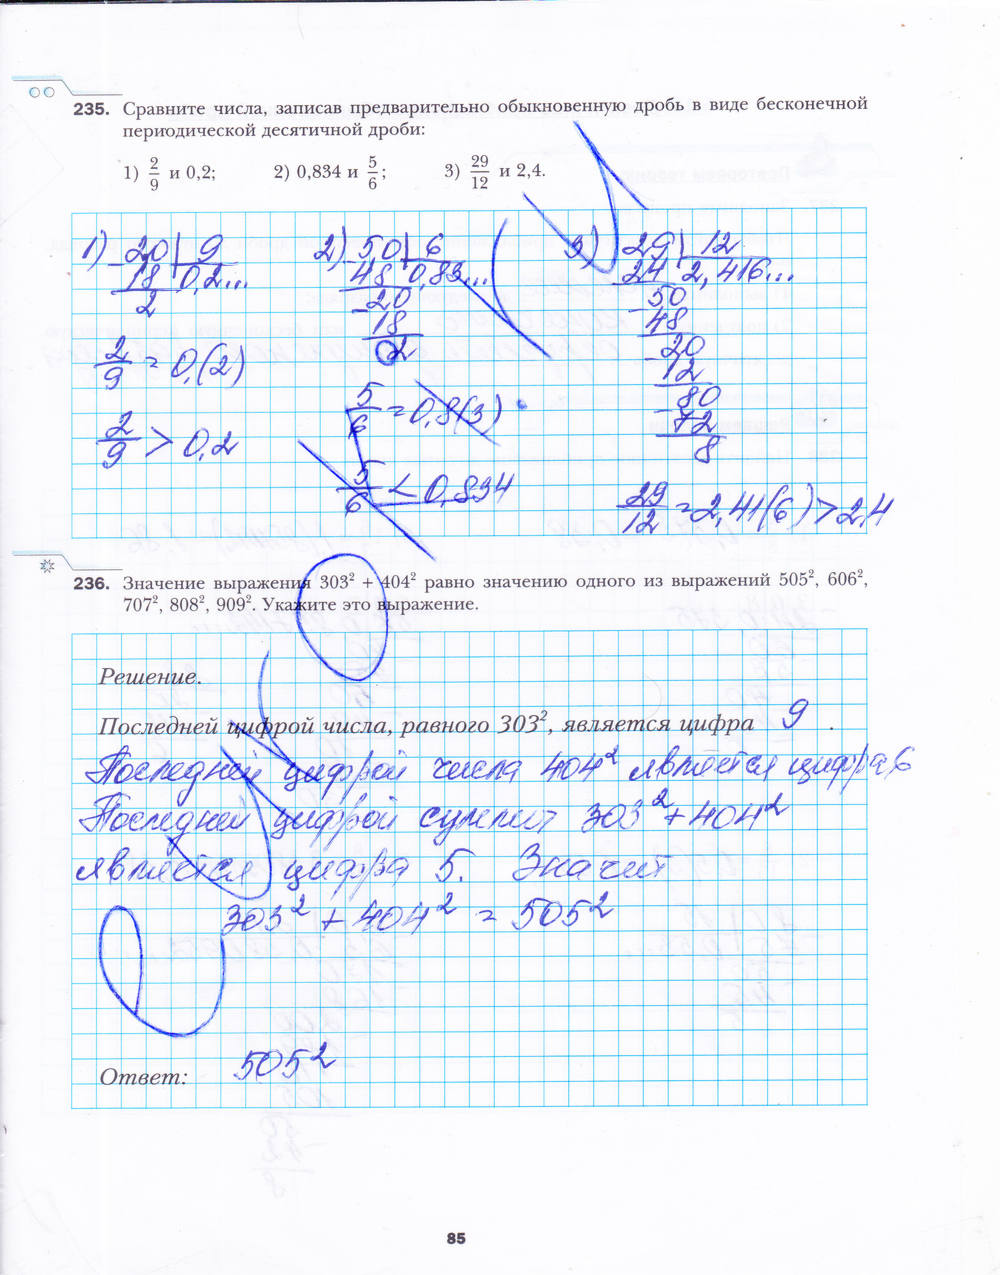 235. Сравните числа, записав предварительно обыкновенную дробь в виде бесконечной
периодической десятичной дроби:
1) 2/9 и 0,2; 2) 0,834 и 5/6; 3) 29/12 и 2,4.
1) 20 | 9
- 18 0,2...
2
2/9 = 0,(2)
2/9 > 0,2
2) 50 | 6
- 48 0,83...
- 20
18
02
5/6 = 0,8(3)
5/6 < 0,834
3) 29 | 12
- 24 2,416...
- 50
48
- 20
12
- 80
72
8
29/12 = 2,41(6) > 2,4
236. Значение выражения 303² + 404² равно значению одного из выражений 505², 606²,
707², 808², 909². Укажите это выражение.
Решение.
Последней цифрой числа, равного 303², является цифра 9 .
Последней цифрой числа 404² является цифра 6
Последней цифрой суммы 303² + 404²
является цифра 5. Значит
303² + 404² = 505²
Ответ: 505²
85